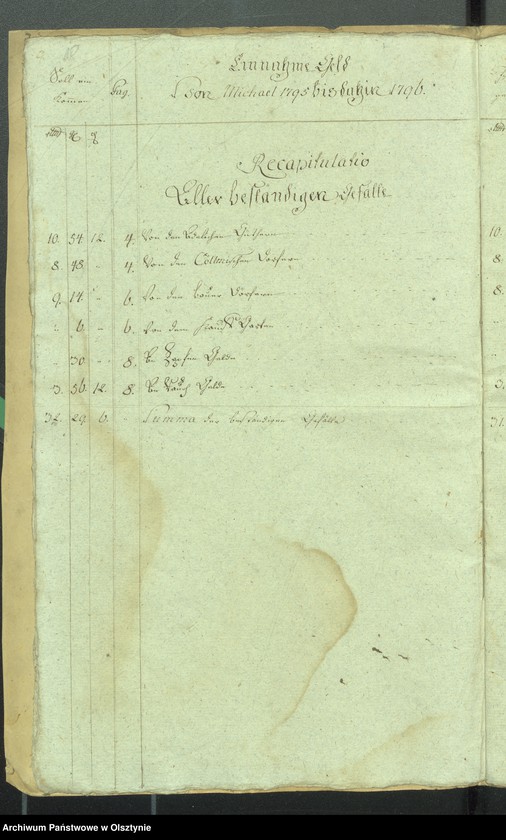 Soll ein
kommen
Pag.
Einnahme Geld
Von Michael 1795 bis dahin 1796.
Recapitulatio
Aller beständigen Gefälle
10. 54. 12. 4. Von den Adelichen Güthern
8. 48. - 4. Von den Cöllmischen Dörfern
9. 14. - 6. Von den Bauer Dörfern
6. - 6. Von dem Garten
30 - 8. An Zapfen Gelde
3. 56. 12. 8. An Gelde
32. 29. 6. Summa der beständigen Gefälle
10.
8.
8.
3.
31.
Archiwum Państwowe w Olsztynie